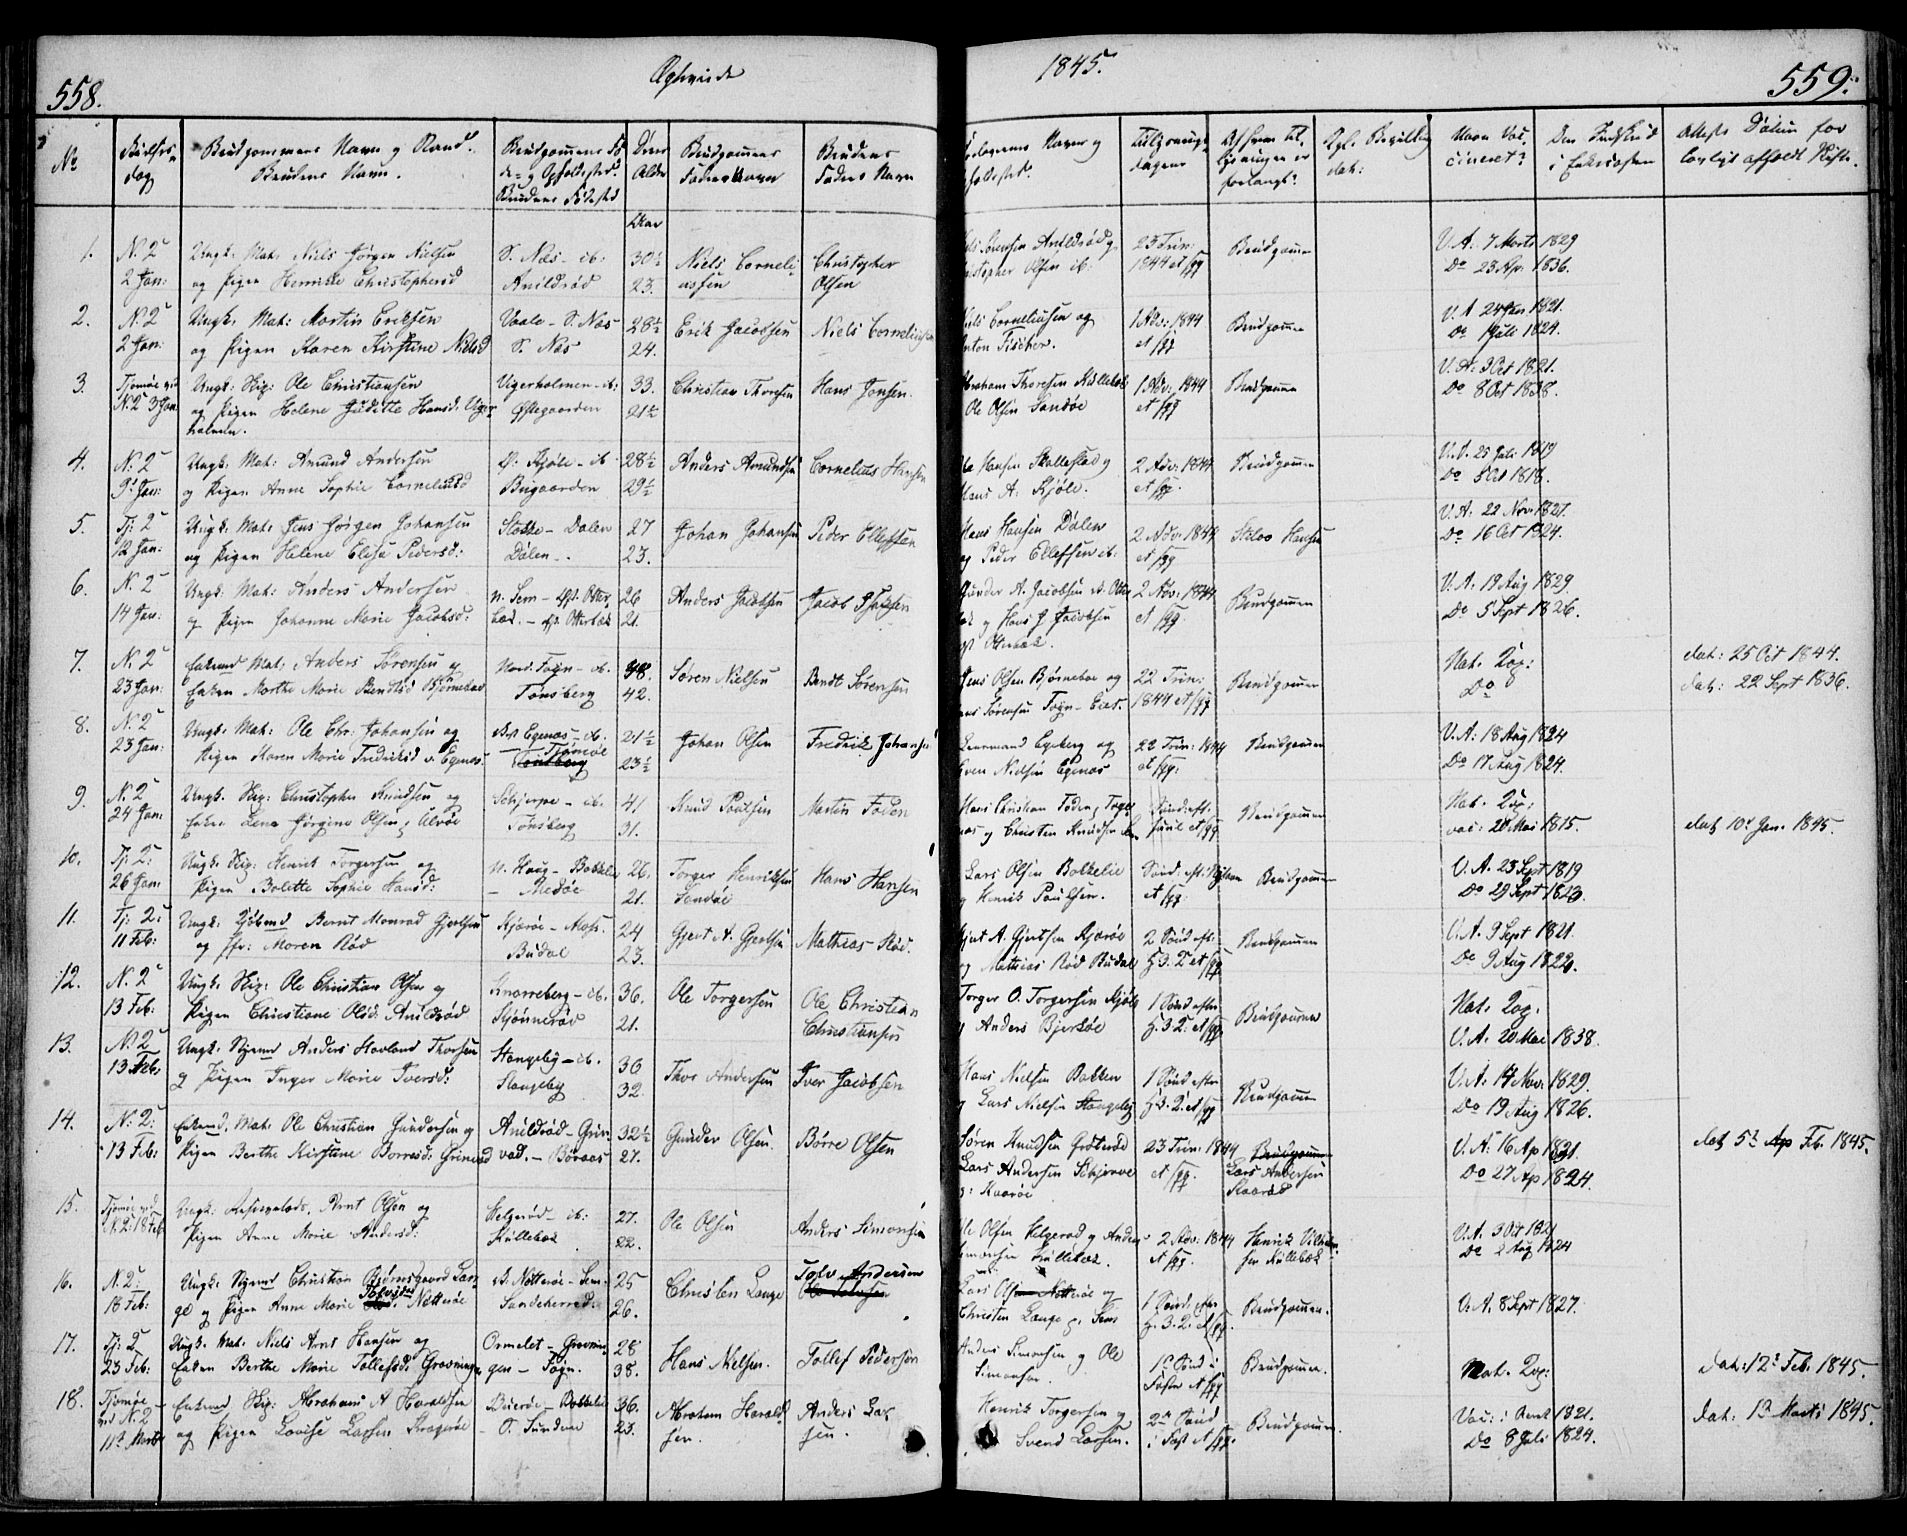 558.
Ægteviede
1845.
559.
No
Vielses-
dag
Brudgommens Navn og Stand.
Brudens Navn.
Brudgommens Fø-
de- og Opholdssted.
Brudens Fødested
Deres
Alder
Aar
Brudgommens
Faders Navn
Brudens
Faders Navn
Forlovernes Navn og
Opholdssted.
Tillysnings-
dagene
Af hvem Til-
lysningen er
forlangt?
Kgl. Bevilling
dat:
Naar Vac-
cineret?
Attest Datum for
lovligt afholdt Skifte.
1.
N. 2
2 Jan:
Ungk. Mat: Niels Jørgen Nielsen
og Pigen Henrikke Christophersd
S. Næs - ib:
Arildsrød
30½
23.
Niels Corneli
ussen
Christopher
Olsen
Niels Sørensen Arildsrød og
Christopher Olsen ib.
23 Trin:
1844 et sqq
Brudgommen
V. A. 7 Marts 1829
Do 23 Apr: 1836.
2.
N. 2
2 Jan:
Ungk. Mat: Martin Eriksen
og Pigen Karen Kirstine Nielsd
Vaale - S. Næs
S. Næs
28½
24.
Erik Jacobsen
Niels Corneliussen
Niels Corneliussen og
Anton Fischer.
1 Adv: 1844
et sqq
Brudgommen
V. A. 24 Jan 1821.
Do 1 Juli 1824.
3.
Tjømøe v.
N. 2 3 Jan:
Ungk: Skip: Ole Christiansen
og Pigen Helene Juditte Hansd. Viger-
holmen.
Vigerholmen - ib:
Østegaarden
33.
21½
Christian Thoresen
Hans Jonsen.
Abraham Thoresen Kullebok
Ole Olsen Sandøe
1 Adv: 1844
et sqq
Brudgommen
V. A: 3 Oct 1821.
Do 8 Oct 1838.
4.
N. 2
9 Jan:
Ungk. Mat: Amund Andersen
og Pigen Anne Sophie Corneliusd
Ø. Kjøle - ib
Buigaarden
28½
29½
Anders Amundsen
Cornelius Hansen
Ole Hansen Skallestad og
Hans A. Kjøle.
2 Adv: 1844
et sqq.
Brudgommen
V. A. 25 Juli 1819
Do 5 Oct 1818.
5.
Tj: 2
12 Jan:
Ungk. Mat: Jens Jørgen Johansen
og Pigen Helene Elise Pedersd:
Stokke - Dalen
Dalen -.
27
23.
Johan Johansen
Peder Ellefsen
Hans Hansen Dalen
og Peder Ellefsen ib.
2 Adv: 1844
et sqq
V. A: 22 Nov: 1821.
Do 16 Oct 1824.
6.
N. 2
14 Jan:
Ungk: Mat: Anders Andersen
og Pigen Johanne Marie Jacobsd:
N. Sem - Ø. Otter-
bæk. - Ø. Otterbæk
26
21.
Anders Jacobsen
Jacob Isaksen
Gunder A. Jacobsen v. Otter
bæk og Hans J. Jacobsen
2 Adv: 1844
et sqq
Brudgommen
V. A. 19 Aug 1829.
Do 5 Sept 1826.
7.
N. 2
23 Jan:
Enkemd Mat: Anders Sørensen og
Enken Marthe Marie Bendtsd Bjørnebøe
Nord. Føyn - ib.
Tønsberg
48.
42.
Søren Nielsen
Bendt Sørensen
Jens Olsen Bjørneboe og
Hans Sørensen Føyn - Eiet.
22 Trin:
1844 et sqq
Brudgommen
Nat. Kop:
Do
dat: 25 Oct 1844.
dat: 22 Sept 1836.
8.
N. 2
23 Jan:
Ungk: Mat: Ole Chr: Johansen og
Pigen Karen Marie Fredriksd v. Egenæs
Egenæs - ib.
Tjømøe
Tønsberg
21½
23½
Johan Olsen
Fredrik Johansen
Lensmand Egeberg og
Even Nielsen Egenæs
22 Trin: 1844
et sqq:
Brudgommen
V. A: 18 Aug 1824
Do 17 Aug 1824.
9.
N. 2
24 Jan:
Ungk. Skip: Christopher Knudsen og
Enke Lena Jørgine Olsen, Elvøe
Schjerpe - ib.
Tønsberg
41
31.
Knud Poulsen
Martin Foden
Hans Christian Foden, Toge-
næs og Christen Knudsen
Sønd: eft:
Juul et sqq
Brudgommen
Nat. Kop:
vac: 20 Mai 1815.
dat 10 Jan. 1845.
10.
Tj: 2:
26 Jan:
Ungk: Skip: Henrik Torgersen og
Pigen Bolette Sophie Hansd:
N. Haug - Bakkelie
- Medøe
26.
21.
Torger Henriksen
Sandøe
Hans Hansen
Lars Olsen Bakkelie
og Henrik Poulsen.
Sønd: eft: Nytaar
et sqq
Brudgommen
V. A. 23 Sept 1819
Do 29 Sept 1823.
11.
Tj: 2:
11 Feb:
Ungk: Kjøbmd Bernt Monrad Gjertsen
og Jfr: Maren Rød
Kjærøe - Moss.
Budal
24
23.
Gjert A. Gjertsen
Mathias Rød.
Gjert A. Gjertsen Kjærøe
og Mathias Rød Budal
2 Sønd eft:
H. 3. K. et sqq
Brudgommen
V. A. 9 Sept 1821
Do 9 Aug 1822.
12.
N. 2
13 Feb:
Ungk. Skip: Ole Christian Olsen og
Pigen Christiane Olsd: Arildsrød
Knarreberg - ib.
Skjønnerød
36.
21.
Ole Torgersen
Ole Christian
Christiansen
Torger O. Torgersen Kjøle
og Anders Bjerkøe
1 Sønd efter
H. 3 K: et sqq
Brudgommen
Nat. Kop.
V. A. 20 Mai 1838.
13.
N. 2
13 Feb:
Ungk. Styrmd Anders Havland Thorsen
og Pigen Inger Marie Iversd:
Stangeby - ib.
Stangeby
30
32.
Thor Andersen
Iver Jacobsen
Hans Nielsen Bakken
og Lars Nielsen Stangeby
1 Sønd efter
H. 3. K: et sqq
Brudgommen
V. A. 14 Nov: 1829.
Do 19 Aug 1826.
14.
N. 2:
13 Feb:
Enkemd. Mat. Ole Christian Gundersen og
Pigen Berthe Kirstine Borresd: Grimestad
Arildsrød - Grim-
stad. - Børaas
32½
27.
Gunder Olsen
Børre Olsen
Søren Knudsen Grøterøe
Lars Andersen Schjerve
23 Trin: 1844
et sqq.
Brudgommen
Lars Andersen
V. A: 16 Ap 1821.
Do 27 Ap 1824.
dat 5 Ap Feb. 1845.
15.
Tjømøe v.
N. 2: 18 Feb
Ungk: Arnt Olsen og
Pigen Anne Marie Andersd:
Helgerød - ib:
Kullebæk
27.
22.
Ole Olsen
Anders Simonsen
Ole Olsen Helgerød og Anders
Simonsen Kullebæk
2 Adv: 1844
et sqq.
Henrik Vilhelm-
sen Kullebæk
V. A: 3 Oct 1821
Do 2 Aug 1824
16.
N. 2:
18 Feb:
Ungk: Styrmd Christian Bjørnsgaard Lan-
ge og Pigen Anne Marie Tolvsdtr Nøtterøe
v. Nøtterøe - Sem -
Sandeherred.
25
26.
Christen Lange
Tolv Andersen
Lars Olsen Nøtterøe og
Christen Lange p. Sem
1 Sønd: efter
H. 3. K. et sqq.
Brudgommen.
V. A. 8 Sept 1827.
17.
Tj: 2
23 Feb:
Ungk. Mat. Niels Arnt Hansen og
Enken Berthe Marie Tollefsd: Grevninge
Ormelet - Grevnin-
gen - Føyn.
28
38.
Hans Nielsen.
Tollef Pedersen
Anders Simonsen og Ole
Simonsen.
1 Sønd i
Faste et sqq
Brudgommen.
Nat. Kop:
dat: 12 Feb. 1845.
18.
Tjømøe
ved N. 2
11 Marts
Enkemd Skip: Abraham A Haraldsen
og Pigen Lovise Larsen Kragerøe
Buerøe - Bakkelie
- S. Sundene
36.
23.
Abraham Harald-
sen.
Anders Lar
sen.
Henrik Torgersen og
Svend Larsen.
2 Sønd
i Fast et sqq.
Brudgommen.
Vac: i Aaret 1821.
Do 8 Juli 1824.
dat: 1 Marts 1845.